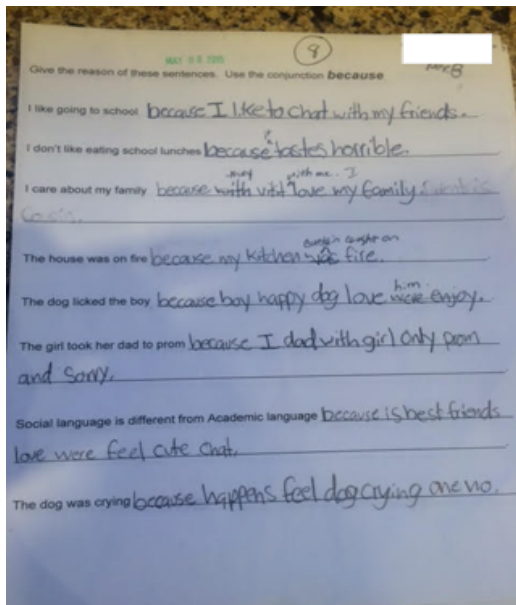 MAY 0 8
8
Give the reason of these sentences. Use the conjunction because
I like going to school because I like to chat with my friends.
I don't like eating school lunches because tastes horrible.
with me. I
I care about my family because with love my family
curtain caught on
The house was on fire because my kitchen was fire.
him
The dog licked the boy because boy happy dog love were enjoy.
The girl took her dad to prom because I dad with girl only prom
and sorry.
Social language is different from Academic language because is best friends
love were feel cute chat.
The dog was crying because happens feel dog crying one no.